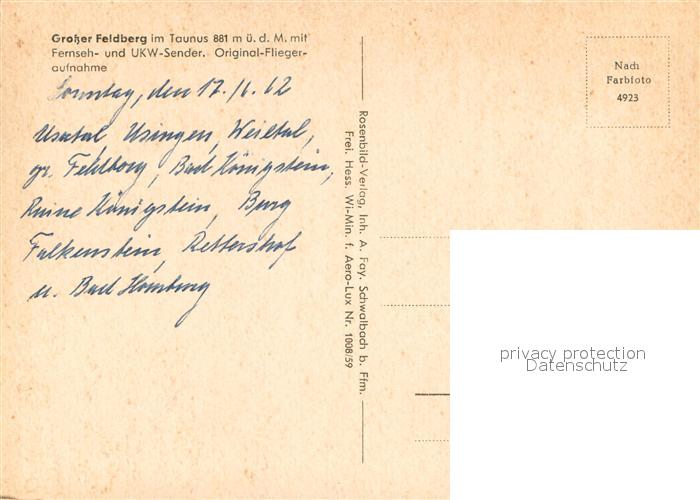 Großer Feldberg im Taunus 881 m ü. d. M. mit
Fernseh- und UKW-Sender. Original-Flieger-
aufnahme
Sonntag, den 17./6. 62
Usatal, Usingen, Weiltal,
gr. Feldberg, Bad Königstein,
Ruine Königstein, Burg
Falkenstein, Rettershof
u. Bad Homburg
Rosenbild-Verlag, Inh. A. Fay. Schwalbach b. Ffm.
Frei. Hess. Wi-Min. f. Aero-Lux Nr. 1008/59
Nach
Farbfoto
4923
privacy protection
Datenschutz